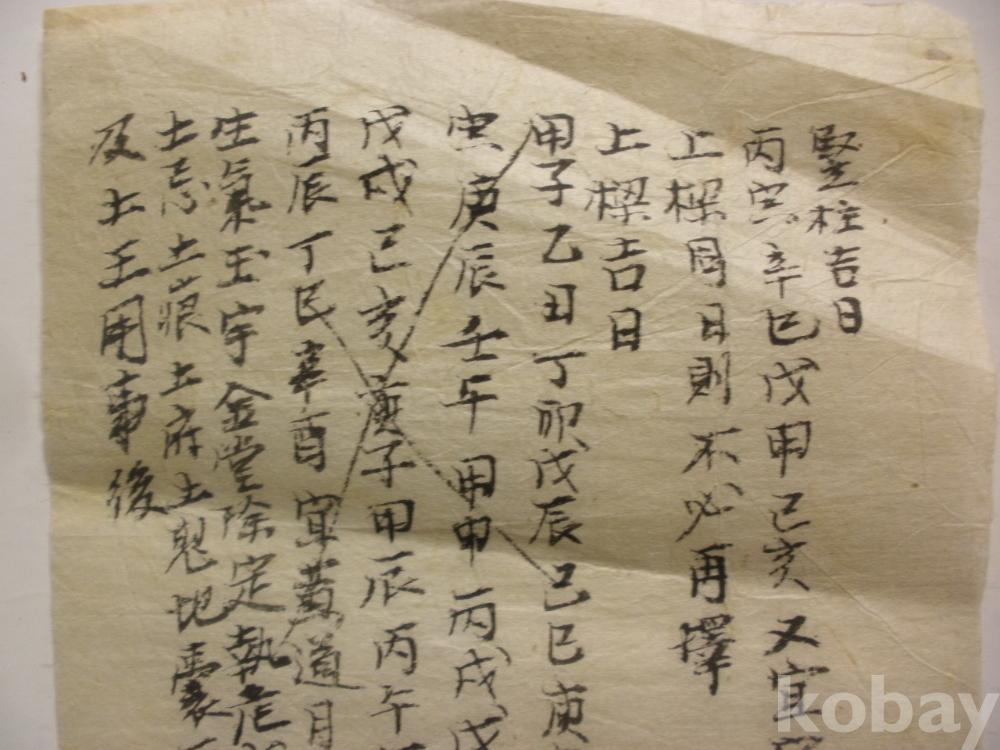 竪柱吉日
丙寅辛巳戊申己亥又宜
上樑同日則不必再擇
上樑吉日
甲子乙丑丁卯戊辰己巳庚
虫庚辰壬午甲申丙戌戊
戊戌己亥庚子甲辰丙午
丙辰丁巳辛酉宜黄道月
生氣玉宇金堂除定執危
土忌土痕土府土鬼地囊
及土王用事後
kobay